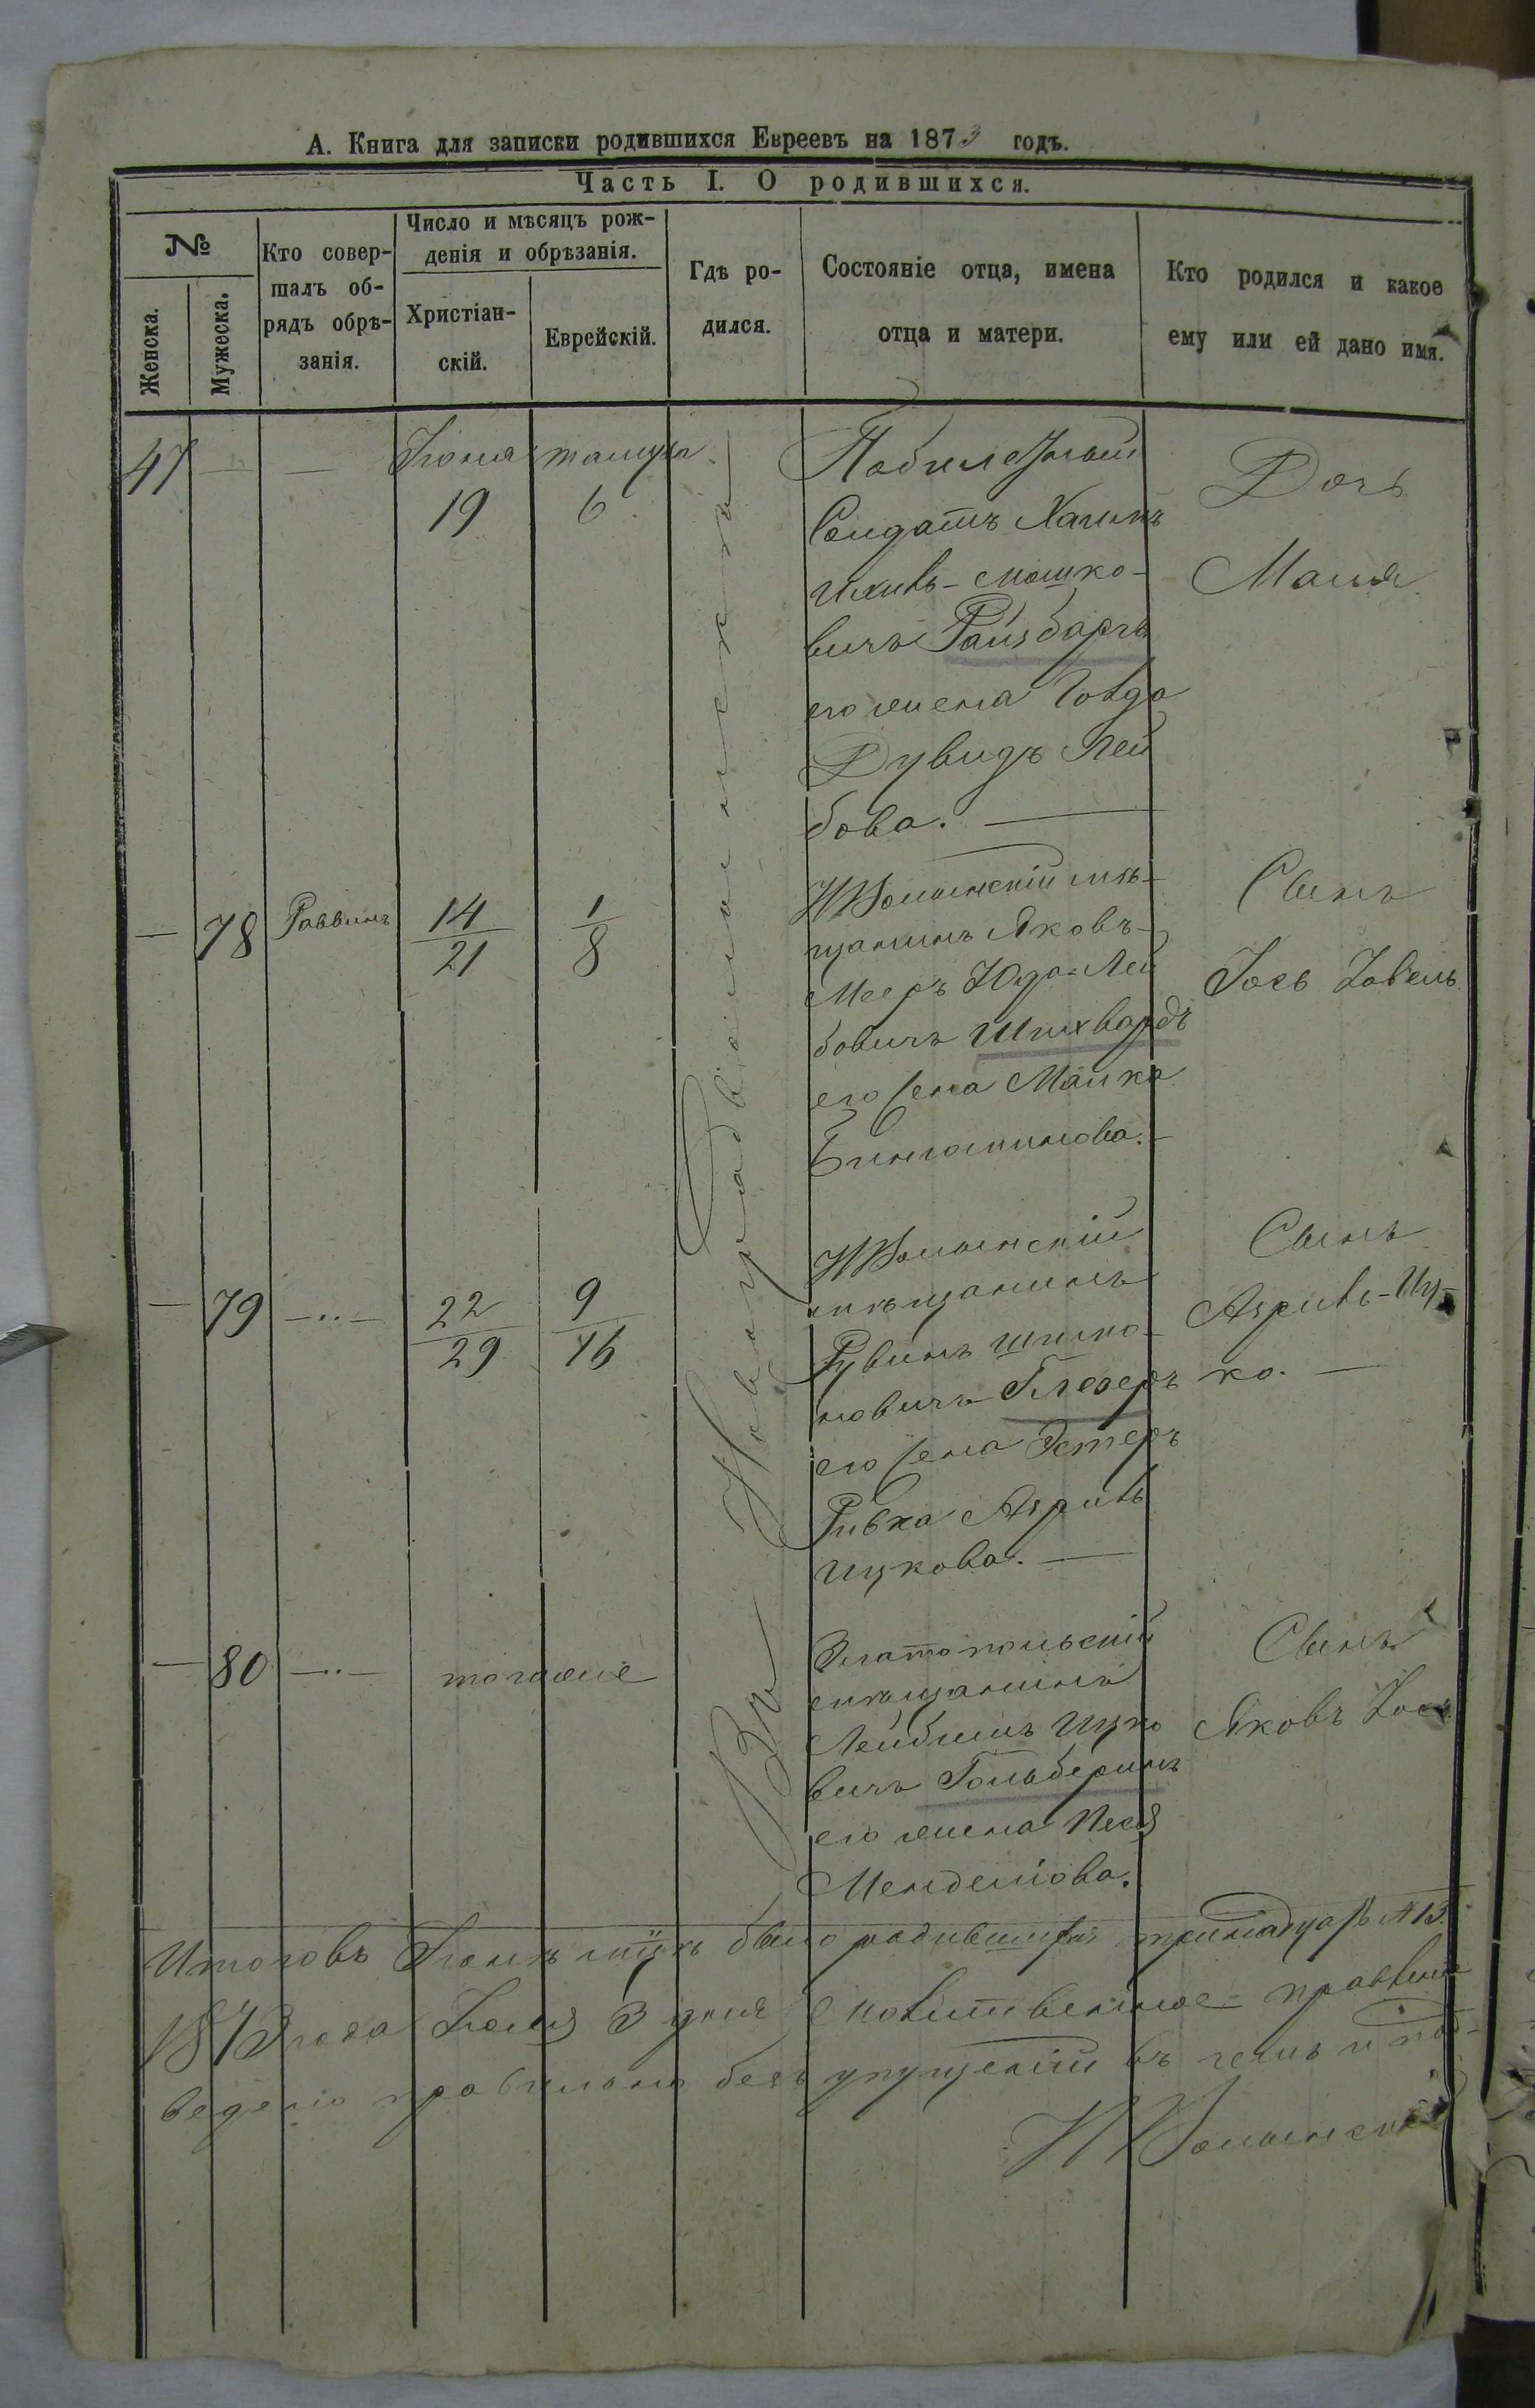 А. Книга для записки родившихся Евреевъ на 1873 годъ.
Часть I. О родившихся.
№
Женска.
Мужеска.
Кто совер-
шалъ об-
рядъ обрѣ-
занія.
Число и мѣсяцъ рож-
денія и обрѣзанія.
Христіан-
скій.
Еврейскій.
Гдѣ ро-
дился.
Состояніе отца, имена
отца и матери.
Кто родился и какое
ему или ей дано имя.
47 — —
Іюня
19
тамуза
6
Въ Новоградволынска
Солдатъ Хаимъ
Ихиль-Мошко-
вичъ Райзбаргъ
его жена Голда
Дувидъ Лей
бова. —
Дочь
Маня
— 78 Раввинъ
14
21
1
8
НВолынскій мѣ-
щанинъ Яковъ-
Мееръ Юдо-Лей
бовичъ Шихвардъ
его жена Малка
Биниаминова. —
Сынъ
Іось Зовель
— 79 —"—
22
29
9
16
НВолынскій
мѣщанинъ
Рувинъ Шимо-
новичъ Глезеръ
его жена Эстеръ
Ривка Азриль
Ицкова. —
Сынъ
Азриль-Иц-
ко. —
— 80 —"—
тогоже
Златопольскій
мѣщанинъ
Лейбишъ Ицко
вичъ Гольберинъ
его жена Песя
Менделіова.
Сынъ
Яковъ Іось
Итого въ Іюнѣ было родившихся тринадцать № 13.
1873 года Іюля 3 дня
ведено правильно безъ упущеній въ чемъ и под-
НВолынскій